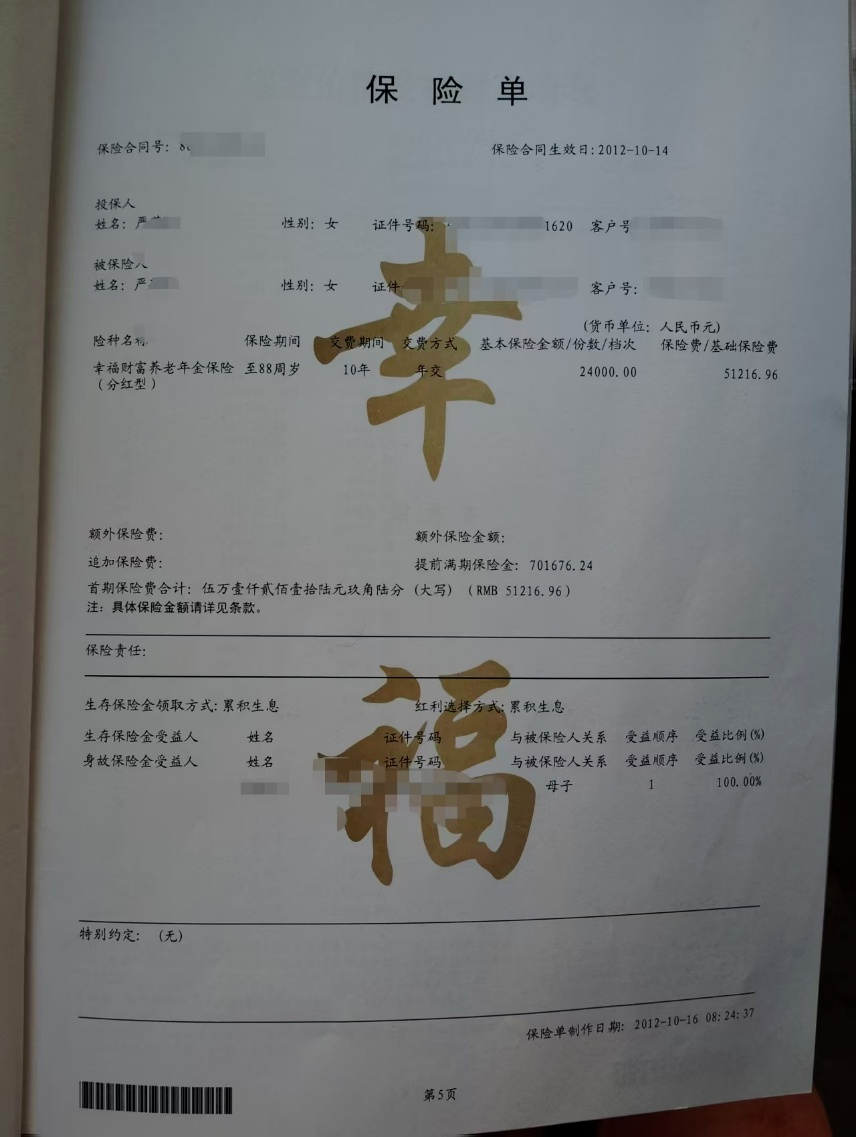 保险单
保险合同号: 保险合同生效日:2012-10-14
投保人
姓名:严 性别: 女 证件号码: 1620 客户号
被保险人
姓名:严 性别: 女 证件 客户号:
(货币单位: 人民币元)
险种名称 保险期间 交费期间 交费方式 基本保险金额/份数/档次 保险费/基础保险费
幸福财富养老年金保险 至88周岁 10年 年交 24000.00 51216.96
(分红型)
幸
额外保险费: 额外保险金额:
追加保险费: 提前满期保险金: 701676.24
首期保险费合计: 伍万壹仟贰佰壹拾陆元玖角陆分 (大写) (RMB 51216.96)
注: 具体保险金额请详见条款。
保险责任:
生存保险金领取方式:累积生息 红利选择方式:累积生息
生存保险金受益人 姓名 证件号码 与被保险人关系 受益顺序 受益比例(%)
身故保险金受益人 姓名 证件号码 与被保险人关系 受益顺序 受益比例(%)
母子 1 100.00%
福
特别约定: (无)
保险单制作日期: 2012-10-16 08:24:37
第5页